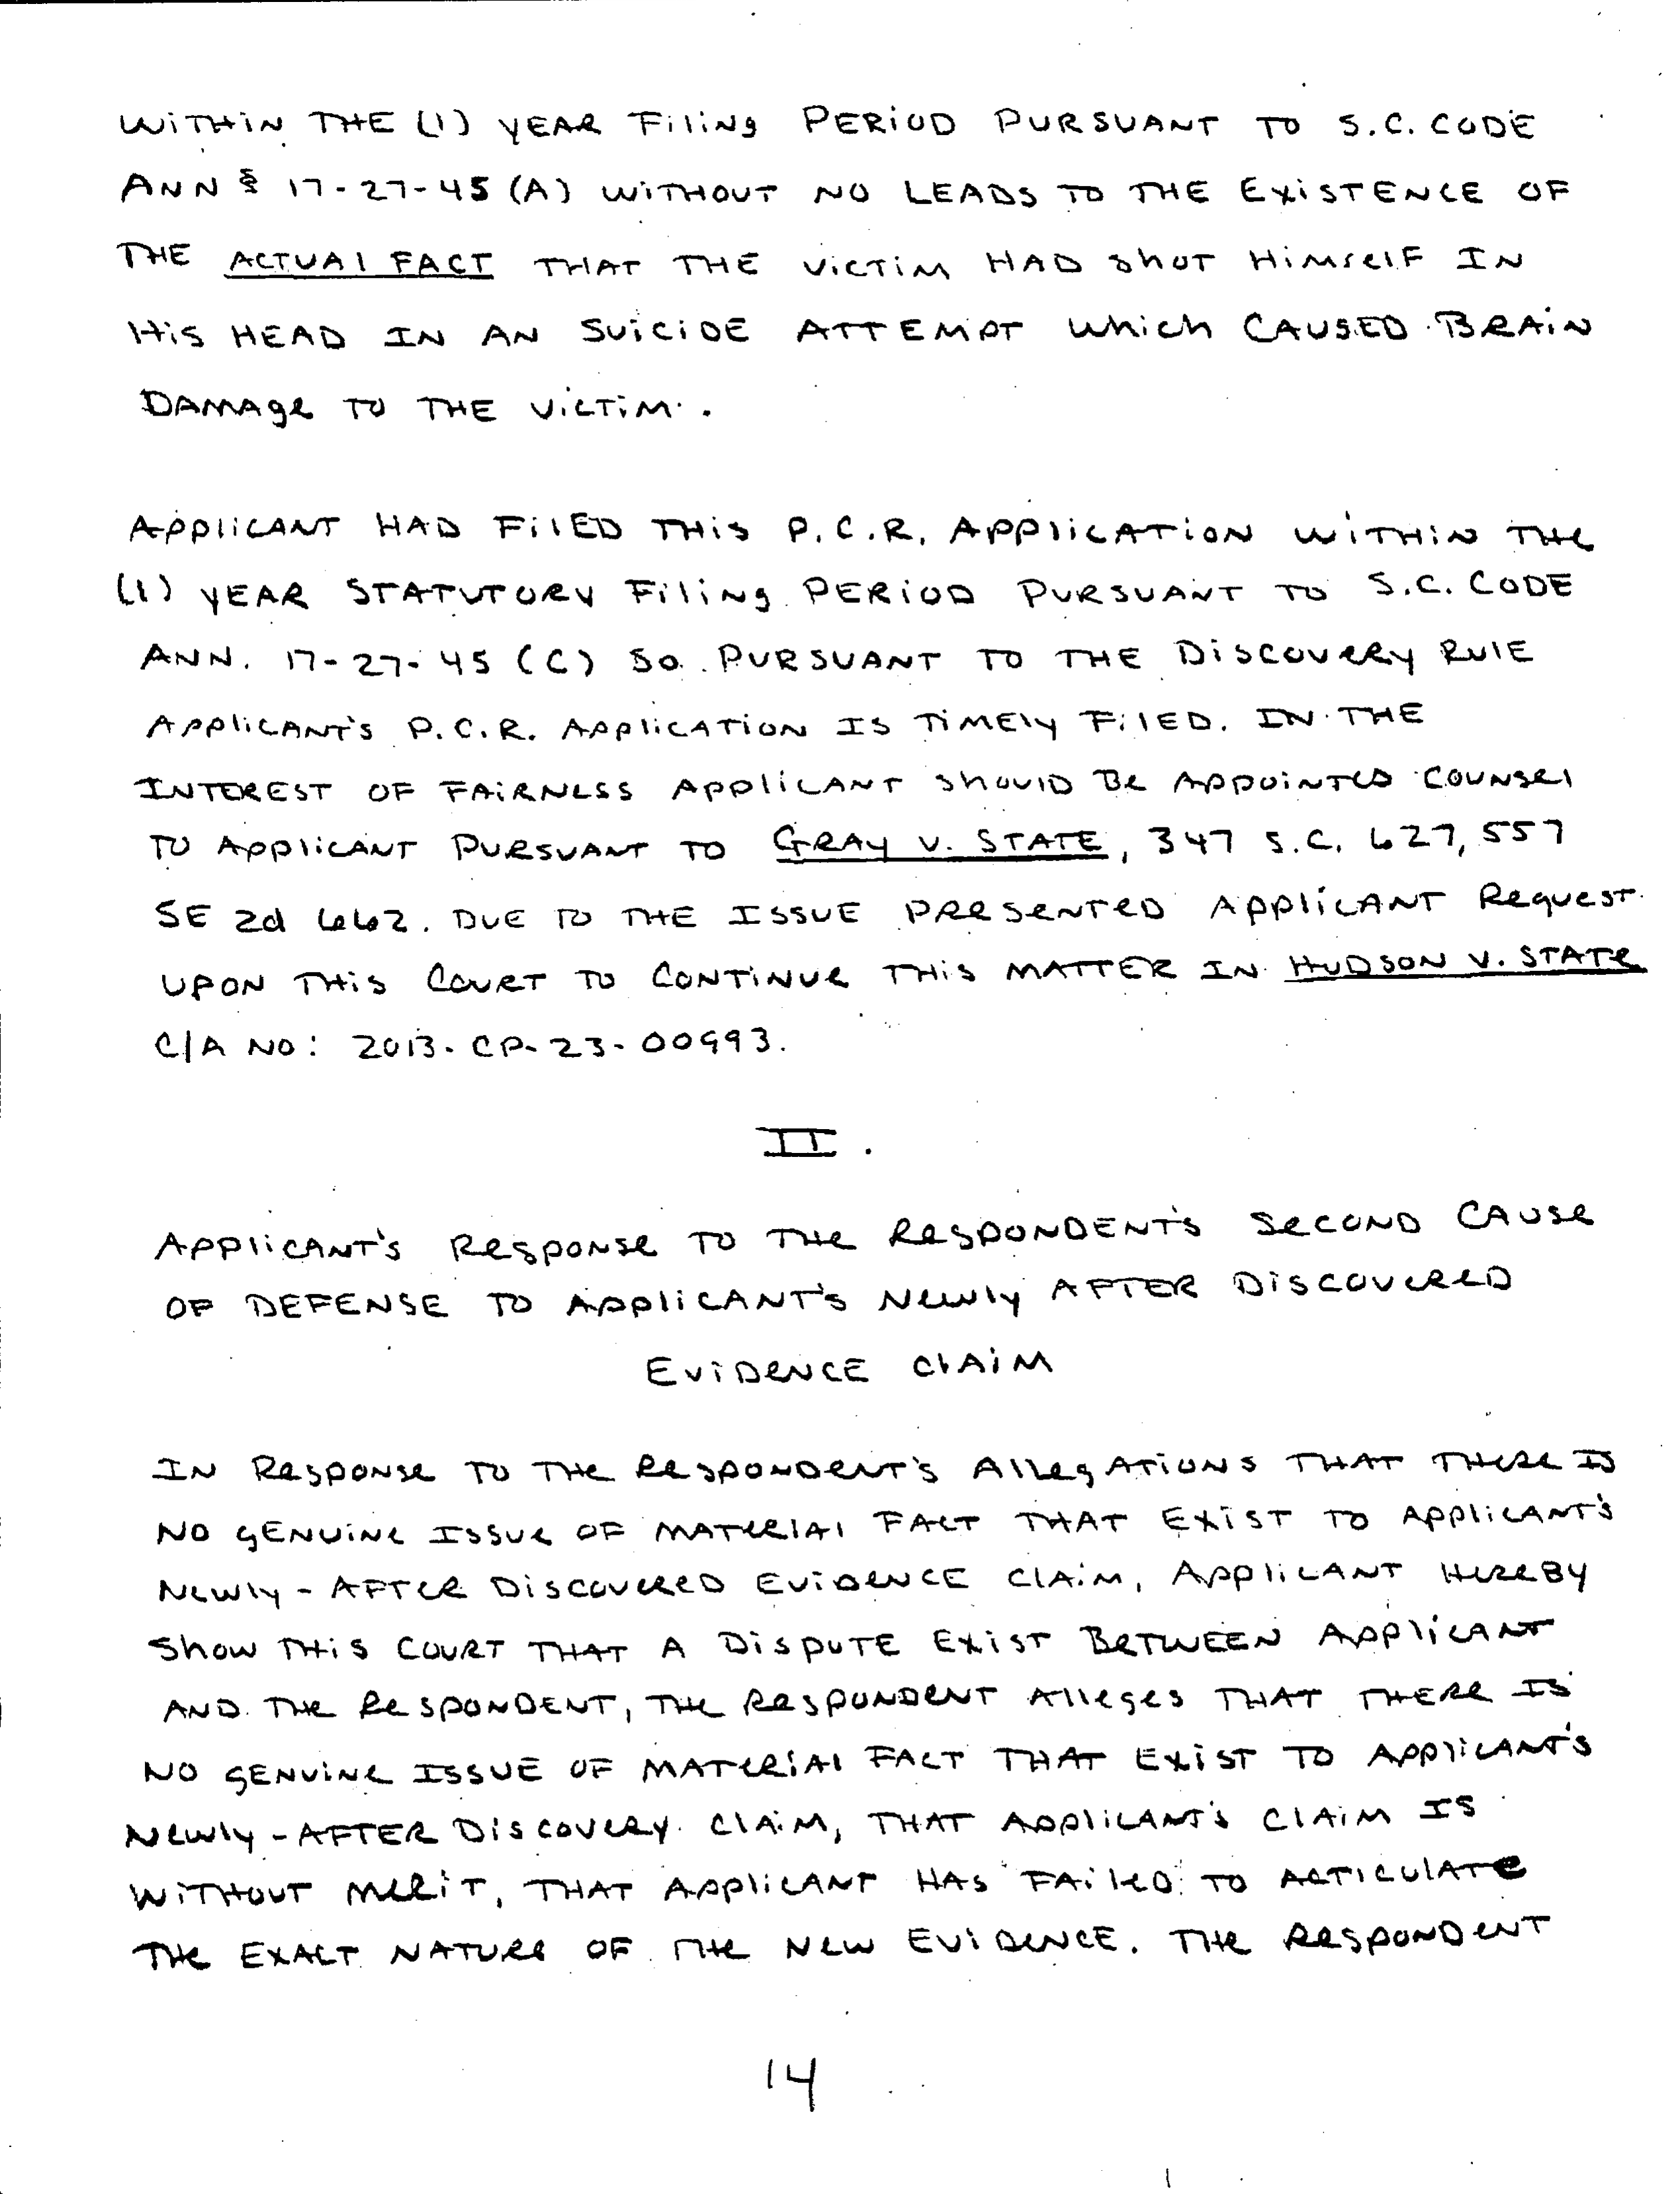 WITHIN THE (1) YEAR FILING PERIOD PURSUANT TO S.C. CODE
ANN § 17-27-45 (A) WITHOUT NO LEADS TO THE EXISTENCE OF
THE ACTUAL FACT THAT THE VICTIM HAD SHOT HIMSELF IN
HIS HEAD IN AN SUICIDE ATTEMPT WHICH CAUSED BRAIN
DAMAGE TO THE VICTIM.
APPLICANT HAD FILED THIS P.C.R. APPLICATION WITHIN THE
(1) YEAR STATUTORY FILING PERIOD PURSUANT TO S.C. CODE
ANN. 17-27-45 (C) SO PURSUANT TO THE DISCOVERY RULE
APPLICANT'S P.C.R. APPLICATION IS TIMELY FILED. IN THE
INTEREST OF FAIRNESS APPLICANT SHOULD BE APPOINTED COUNSEL
TO APPLICANT PURSUANT TO GRAY V. STATE, 347 S.C. 627, 557
SE 2d 662. DUE TO THE ISSUE PRESENTED APPLICANT REQUEST
UPON THIS COURT TO CONTINUE THIS MATTER IN HUDSON V. STATE
C/A NO: 2013-CP-23-00993.
II.
APPLICANT'S RESPONSE TO THE RESPONDENT'S SECOND CAUSE
OF DEFENSE TO APPLICANT'S NEWLY AFTER DISCOVERED
EVIDENCE CLAIM
IN RESPONSE TO THE RESPONDENT'S ALLEGATIONS THAT THERE IS
NO GENUINE ISSUE OF MATERIAL FACT THAT EXIST TO APPLICANT'S
NEWLY-AFTER DISCOVERED EVIDENCE CLAIM, APPLICANT HEREBY
SHOW THIS COURT THAT A DISPUTE EXIST BETWEEN APPLICANT
AND THE RESPONDENT, THE RESPONDENT ALLEGES THAT THERE IS
NO GENUINE ISSUE OF MATERIAL FACT THAT EXIST TO APPLICANT'S
NEWLY-AFTER DISCOVERY CLAIM, THAT APPLICANT'S CLAIM IS
WITHOUT MERIT, THAT APPLICANT HAS FAILED TO ARTICULATE
THE EXACT NATURE OF THE NEW EVIDENCE. THE RESPONDENT
14